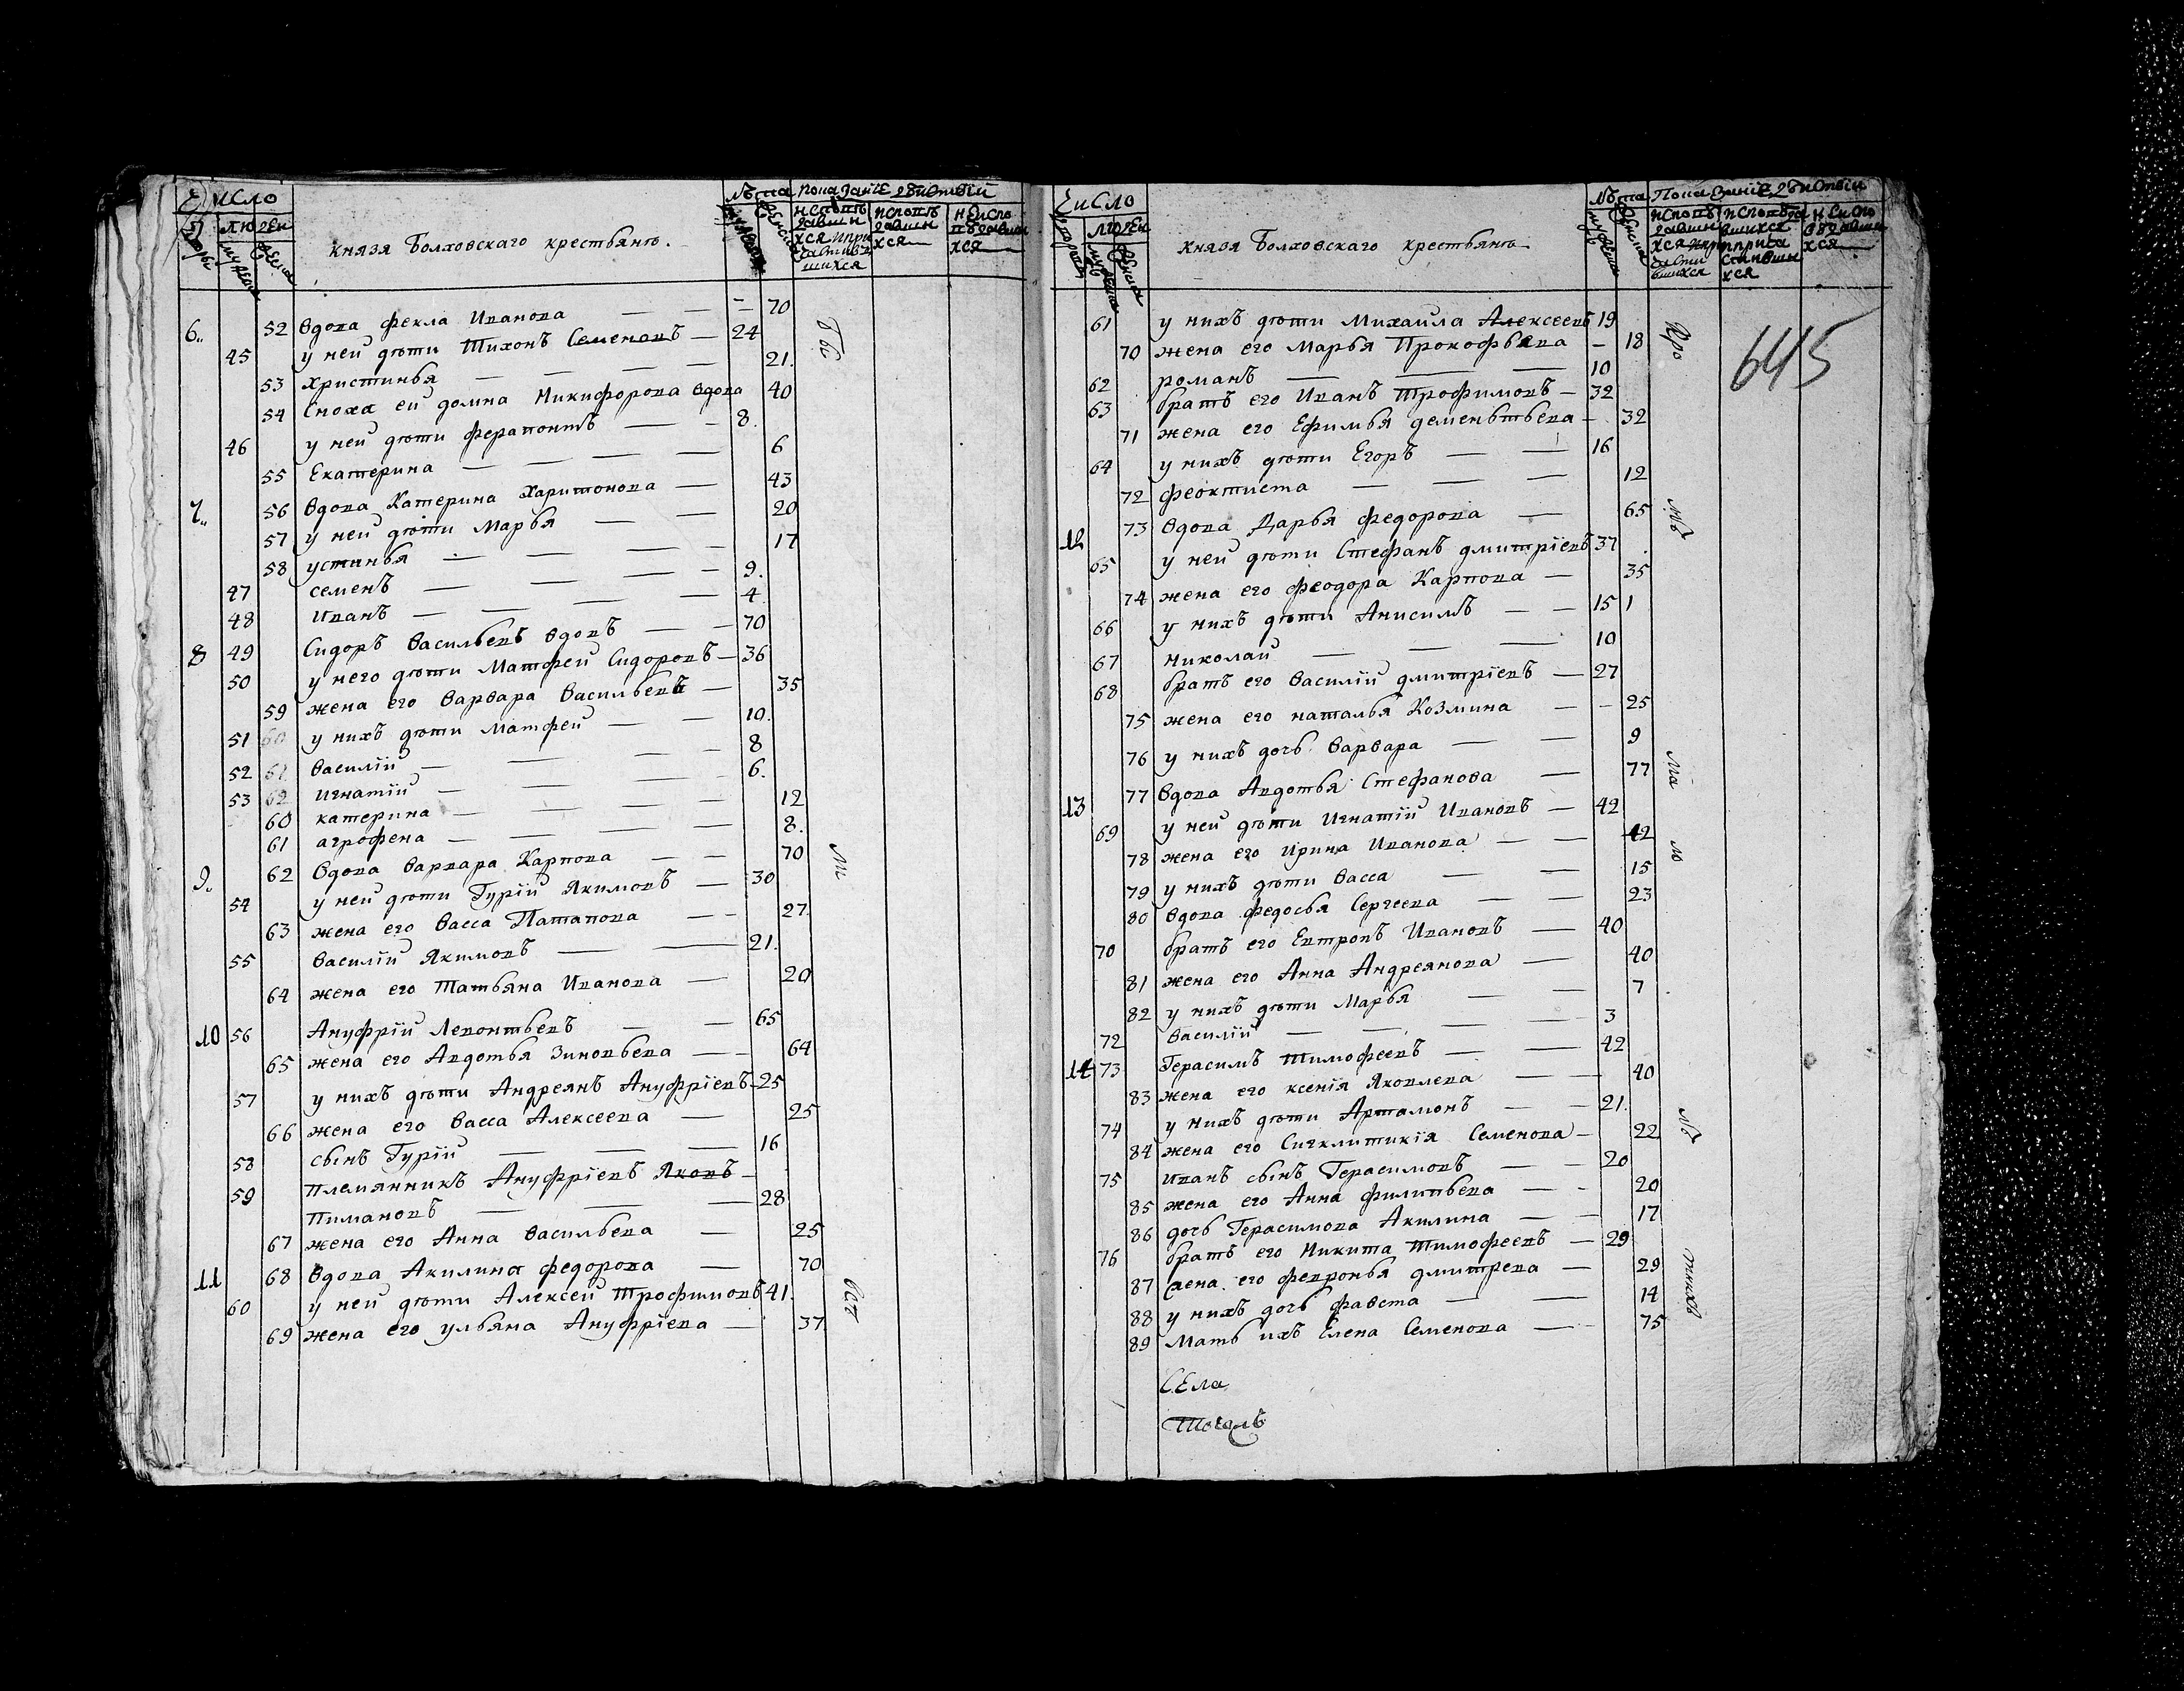 Число
людей
князя Болховскаго крестьянъ.
6 52 вдова Фекла Иванова — — — 70
45 у неи дѣти Тихонъ Семеновъ — 24
53 Христинья — — — — 21.
54 Сноха еи домна Никифорова вдова 40
46 у неи дѣти Ферапонтъ — — 8.
55 Екатерина — — — — 6
7 56 вдова Катерина Харитонова — 43
57 у неи дѣти Марья — — 20
58 устинья — — — — 17
47 семенъ — — — — 9.
48 Иванъ — — — — 4
8 49 Сидоръ Васильевъ вдовъ — — 70
50 у него дѣти Матфеи Сидоровъ — 36
59 жена его Варвара Васильевъ — 35
51 60 у нихъ дѣти Матфеи — — 10.
52 61 Василіи — — — — 8
53 62 игнатіи — — — — 6.
60 катерина — — — — 12
61 агрофена — — — — 8.
9. 62 вдова Варвара Карпова — — 70
54 у неи дѣти Гурій Якимовъ — 30
63 жена его Васса Патапова — — 27.
55 Василіи Якимовъ — — 21.
64 жена его Татьяна Иванова — 20
10 56 Ануфріи Левонтьевъ — — 65
65 жена его Авдотья Зиновьева — — 64
57 у нихъ дѣти Андреянъ Ануфріевъ — 25
66 жена его Васса Алексеева — 25
58 сынъ Гуріи — — — 16
59 племянникъ Ануфріевъ Яковъ —
Пимановъ — — — 28
67 жена его Анна Васильева — 25
11 68 вдова Акилина федорова — 70
60 у неи дѣти Алексеи Трофимовъ 41.
69 жена его ульяна Ануфріева — 37
Число
людей
князя Болховскаго крестьянъ
645
61 у нихъ дѣти Михаила Алексеевъ 19
70 жена его Марья Прокофьева — 18
62 романъ — — — 10
63 братъ его Иванъ Трофимовъ — 32
71 жена его Ефимья деменьтьева — 32
64 у нихъ дѣти Егоръ — — 16
72 феоктиста — — — 12
12 73 вдова Дарья федорова — 65
65 у неи дѣти Стефанъ дмитріевъ 37
74 жена его феодора Карпова — 35
66 у нихъ дѣти Анисимъ — — 15
67 николаи — — — 10
68 братъ его Василіи дмитріевъ — 27
75 жена его наталья Козмина — — 25
76 у нихъ дочь Варвара — — 9
13 77 вдова Авдотья Стефанова — 77
69 у неи дѣти Игнатіи Ивановъ — 42
78 жена его Ирина Иванова — — 42
79 у нихъ дѣти Васса — — 15
80 вдова федосья Сергеева — — 23
70 братъ его Евтропъ Ивановъ — 40
81 жена его Анна Андреянова — 40
82 у нихъ дѣти Марья — — 7
72 Василіи — — — — 3
14 73 Герасимъ Тимофеевъ — — 42
83 жена его ксенія Яковлева — — 40
74 у нихъ дѣти Артамонъ — — 21.
84 жена его Сигклитикія Семенова — 22
75 иванъ сынъ Герасимовъ — — 20
85 жена его Анна филипьева — — 20
86 дочь Герасимова Акилина — — 17
76 братъ его Никита Тимофеевъ — 29
87 его февронья дмитрева — 29
88 у нихъ дочь фавста — — 14
89 Мать ихъ Елена Семенова — 75
Села